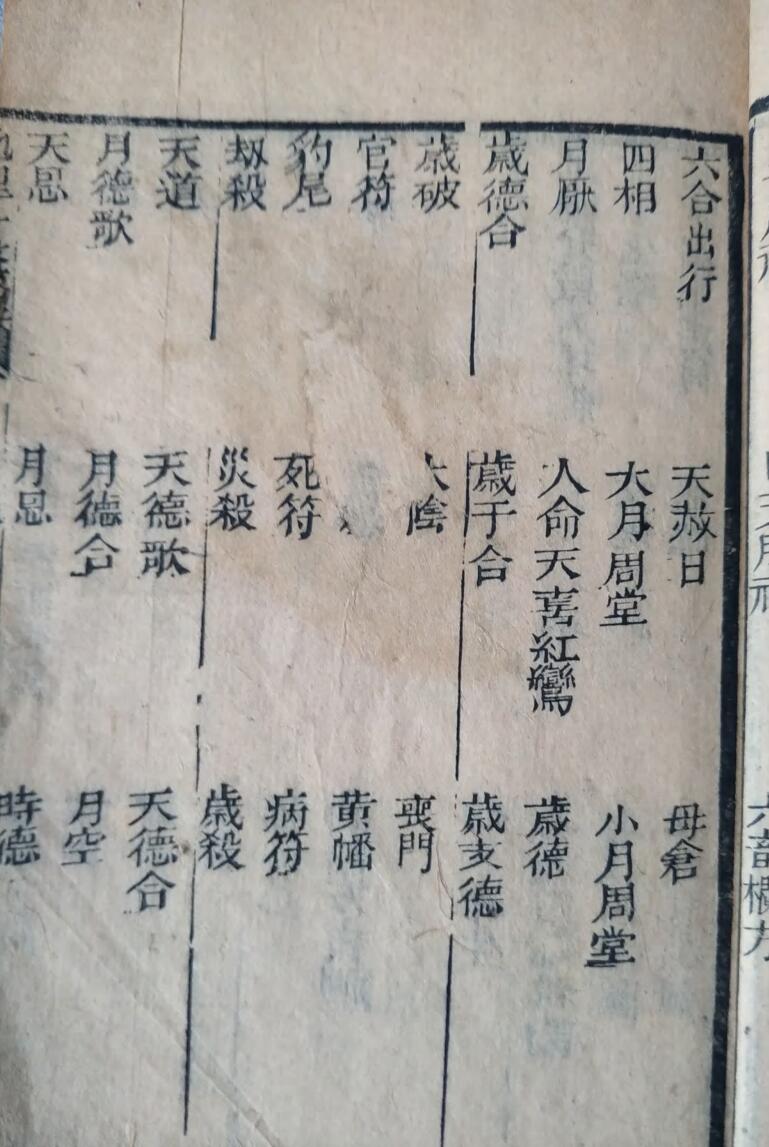 六合出行 天赦日 母倉
四相 大月周堂 小月周堂
月厭 人命天喜紅鸞 歳德
歳德合 歳干合 歳支德
歳破 陰 喪門
官符 黄幡
豹尾 死符 病符
刼殺 災殺 歳殺
天道 天德歌 天德合
月德歌 月德合 月空
天恩 月恩 時德